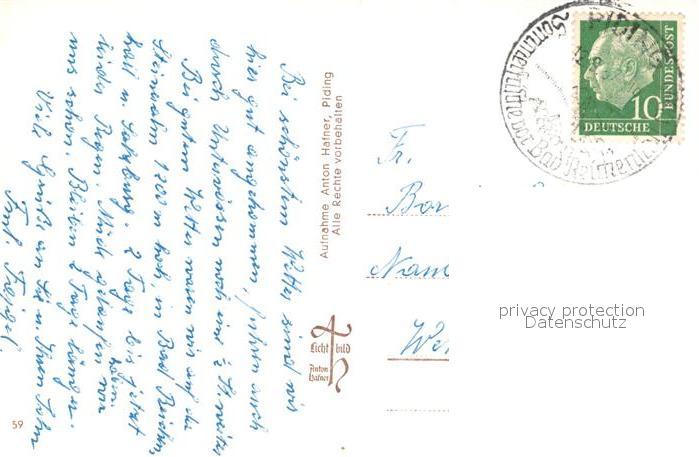 Bei schönstem Wetter sind wir
hier gut angekommen, fuhren auch
durch Unterwössen noch und ½ St. weiter
Bei gutem Wetter waren wir auf der
Steinalm 1200 m hoch, in Bad Reichen,
hall u Salzburg. 2 Tage bis jetzt
haben
wir den Regen. Müde gelaufen
uns schon. Bleiben 2 Tage länger.
Viele Grüße an Sie u. Ihren Sohn
Fam.
Aufnahme Anton Hafner, Piding
Alle Rechte vorbehalten
Licht bild
Anton
Hafner
59
Fr.
Bor
Nam
We
PIDING
Sommerfrische vor Bad Reichenhall
10
DEUTSCHE
BUNDESPOST
privacy protection
Datenschutz